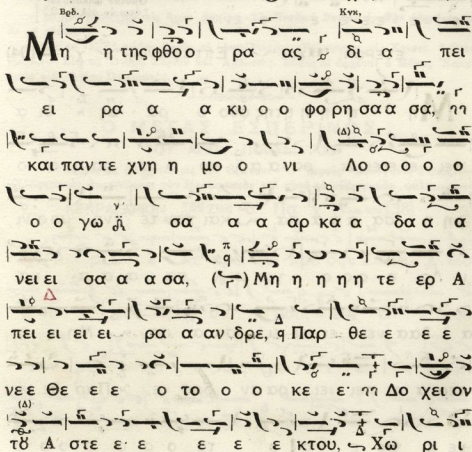 Βαδ. Κυκ.
Μη η της φθο ο ρα ας δι α πει
ει ρα α α κυ ο ο φο ρη σα α σα,
και παν τε χνη η μο ο νι Λο ο ο ο
ο γω σα α α αρ κα α δα α α
νει ει σα α α σα, Μη η η η η τε ερ Α
πει ει ει ει ρα α αν δρε, Παρ θε ε ε ε
νε ε Θε ε ε ο το ο ο κε ε Δο χει ον
τȣ Α στε ε ε ε ε ε κτου, Χω ρι ι